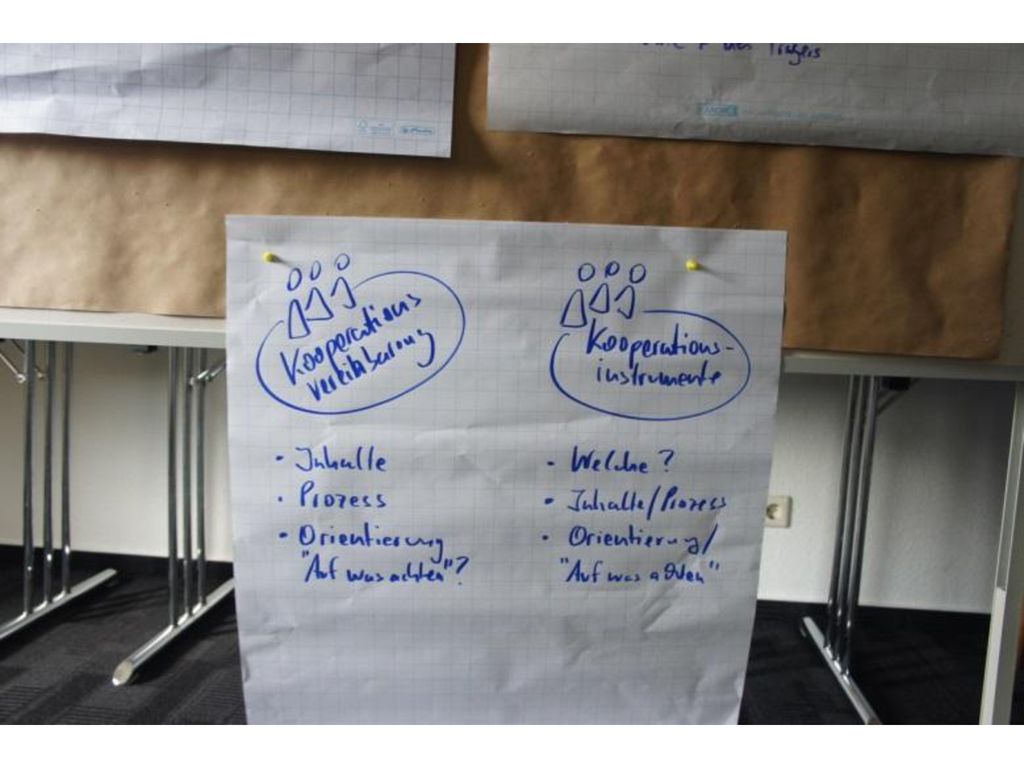 des Trägers
Kooperations
vereinbarung
• Inhalte
• Prozess
• Orientierung
"Auf was achten"?
Kooperations-
instrumente
• Welche?
• Inhalte/Prozess
• Orientierung/
"Auf was achten"